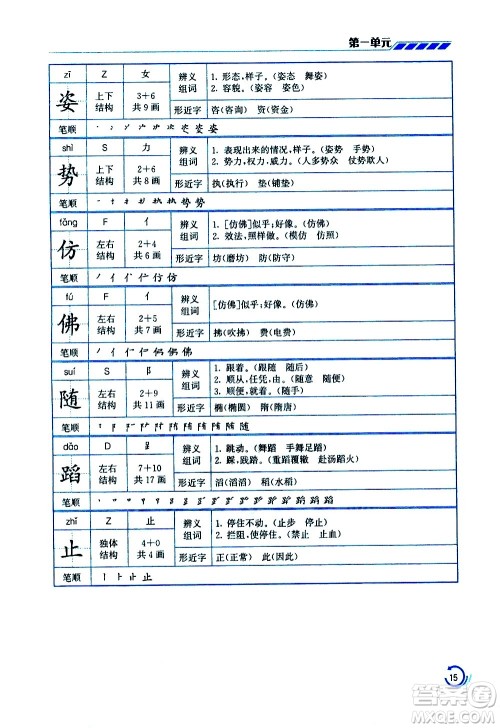 第一单元
zī Z 女 辨义组词 1. 形态，样子。（姿态 舞姿）
2. 容貌。（姿容 姿色）
姿 上下结构 3+6 共9画 形近字 咨（咨询） 资（资金）
笔顺
shì S 力 辨义组词 1. 表现出来的情况，样子。（姿势 手势）
2. 势力，权力，威力。（人多势众 仗势欺人）
势 上下结构 2+6 共8画 形近字 执（执行） 垫（铺垫）
笔顺
fǎng F 亻 辨义组词 1. [仿佛]似乎；好像。（仿佛）
2. 效法，照样做。（模仿 仿照）
仿 左右结构 2+4 共6画 形近字 坊（磨坊） 防（防守）
笔顺
fú F 亻 辨义组词 [仿佛]似乎；好像。（仿佛）
佛 左右结构 2+5 共7画 形近字 拂（吹拂） 费（电费）
笔顺
suí S 阝 辨义组词 1. 跟着。（跟随 随后）
2. 顺从，任凭，由。（随意 随便）
3. 顺便，就着。（随手）
随 左右结构 2+9 共11画 形近字 椭（椭圆） 隋（隋唐）
笔顺
dǎo D 𧾷 辨义组词 1. 跳动。（舞蹈 手舞足蹈）
2. 踩，践踏。（重蹈覆辙 赴汤蹈火）
蹈 左右结构 7+10 共17画 形近字 滔（滔滔） 稻（水稻）
笔顺
zhǐ Z 止 辨义组词 1. 停住不动。（止步 停止）
2. 拦阻，使停住。（禁止 止血）
止 独体结构 4+0 共4画 形近字 正（正常） 此（因此）
笔顺
15
答案圈
MXQE.COM